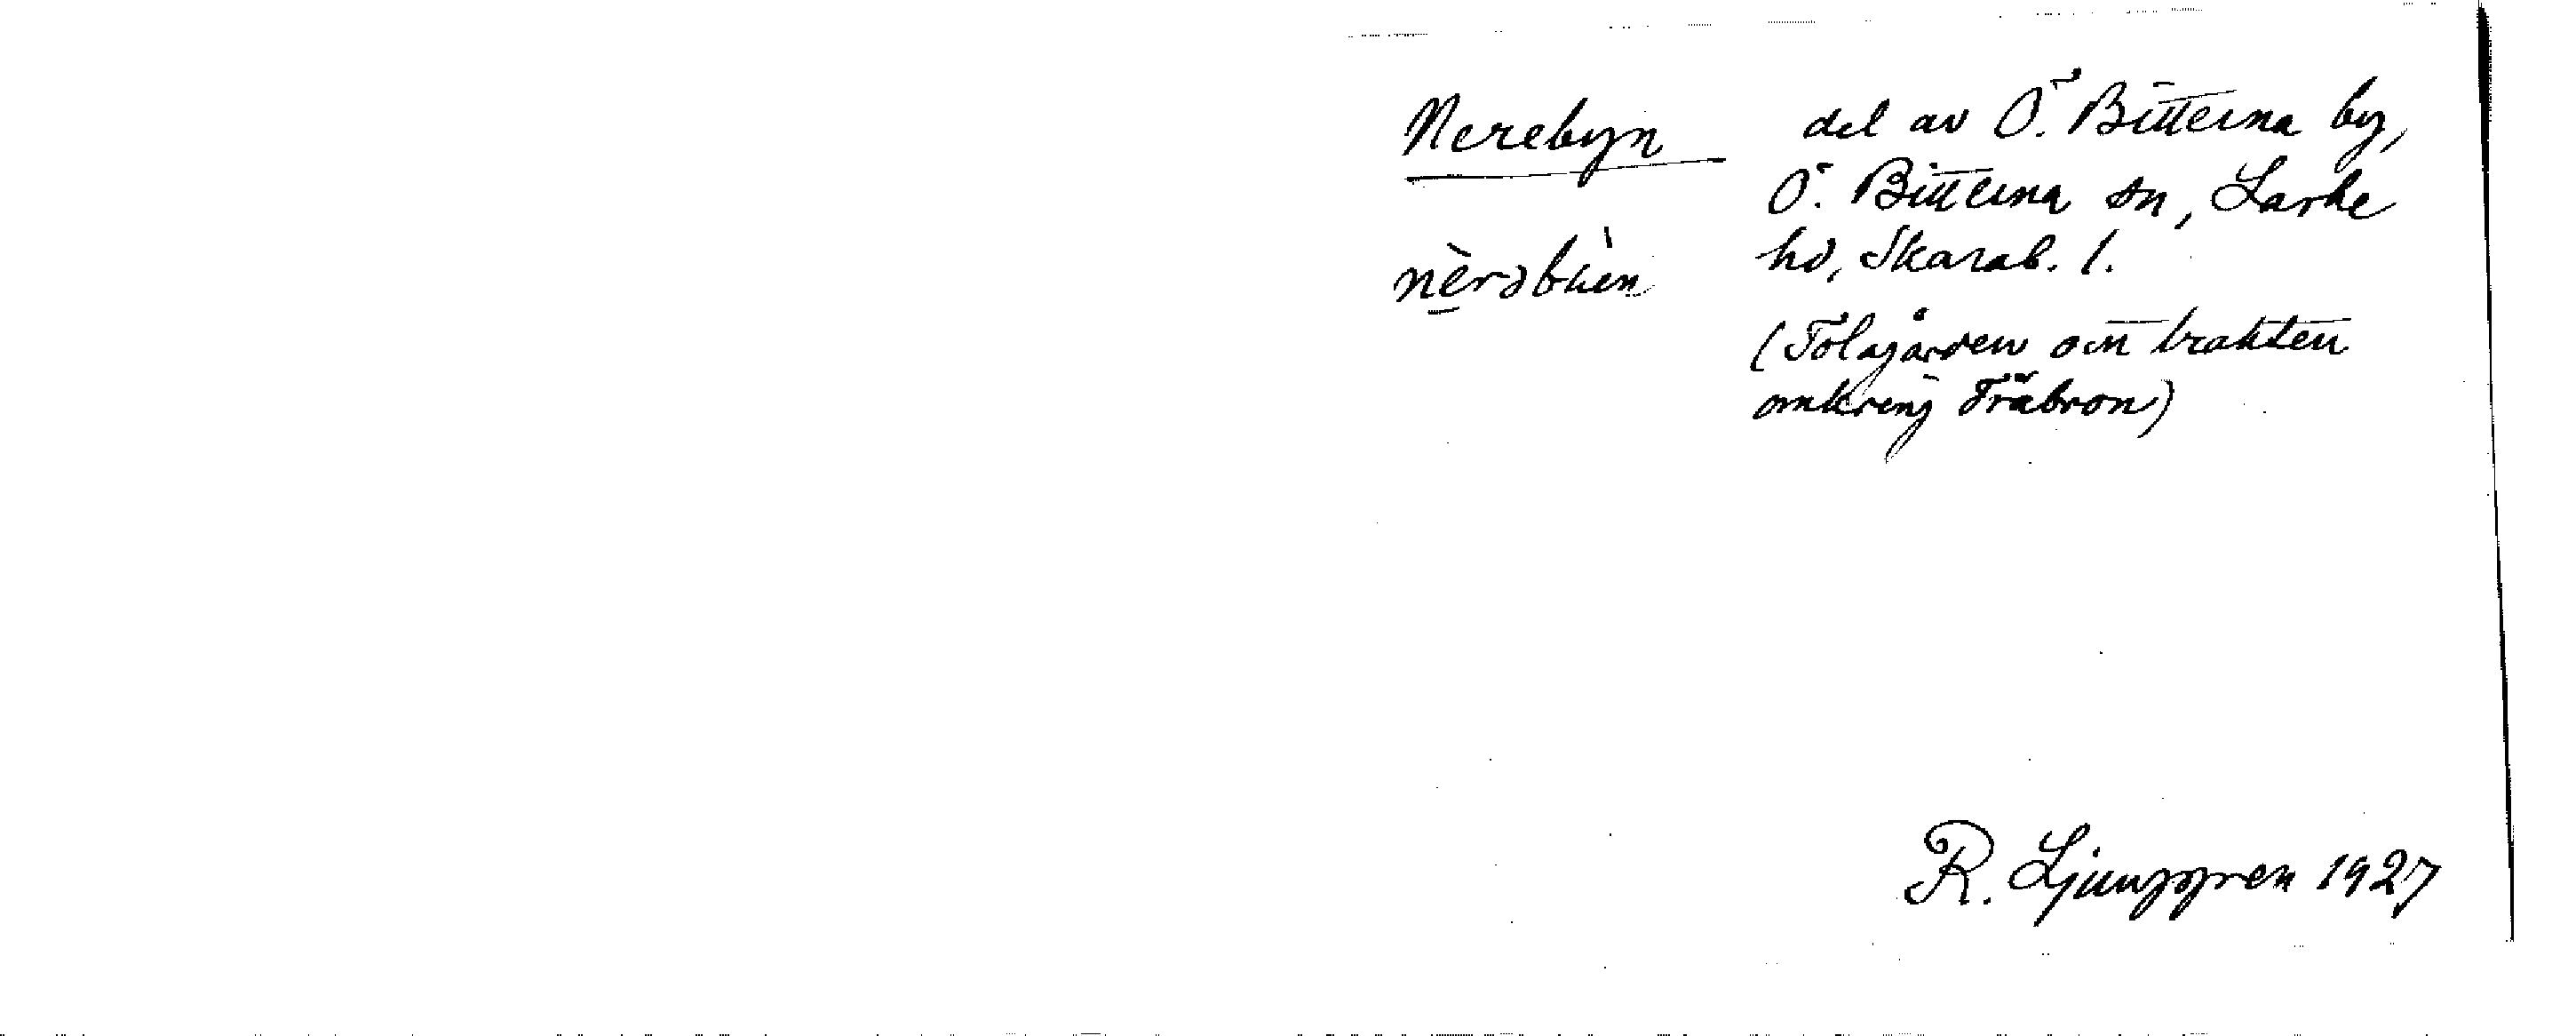 Nerebyn
nèrəbùen
del av Ö. Bitterna by,
Ö. Bitterna sn, Laske
hd, Skarab. l.
(Tolagården o trakten
omkring Träbron)
R. Ljunggren 1927